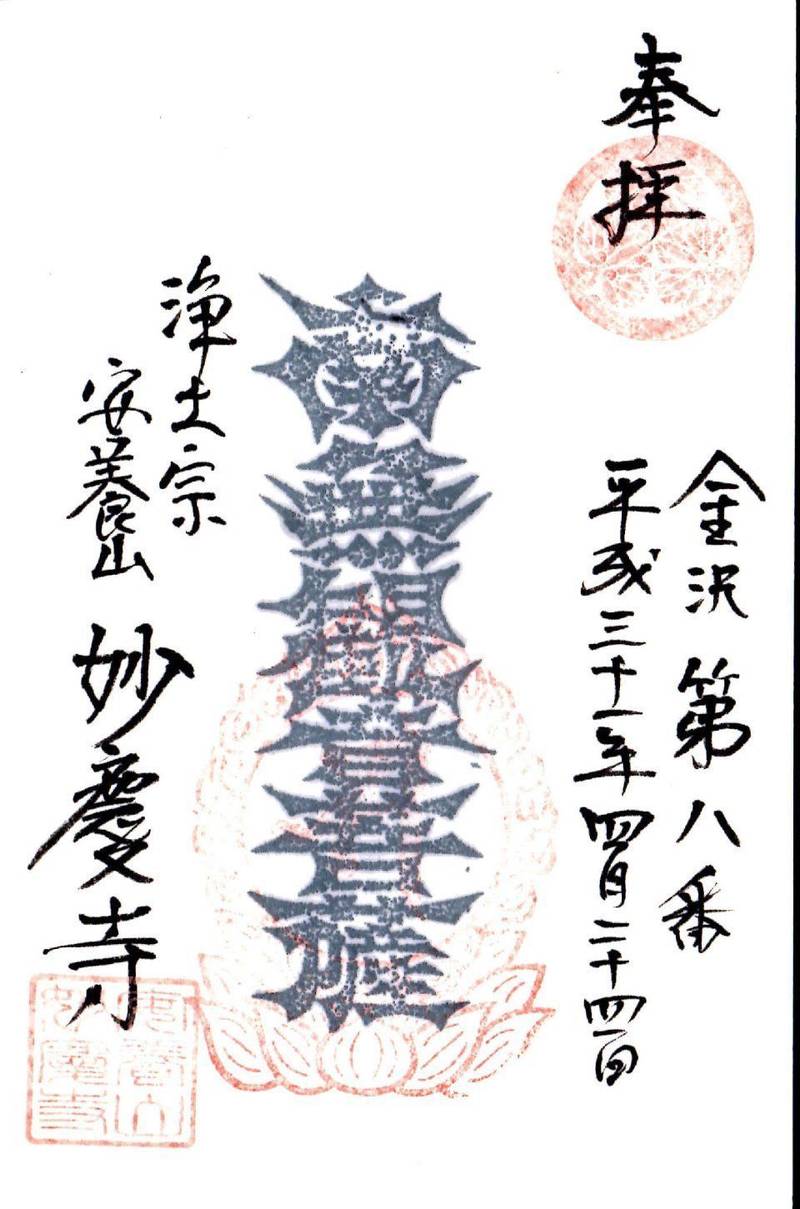 奉拝
金沢第八番
平成三十一年四月二十四日
南無観世音菩薩
浄土宗
安養山
妙慶寺
安養山
妙慶寺